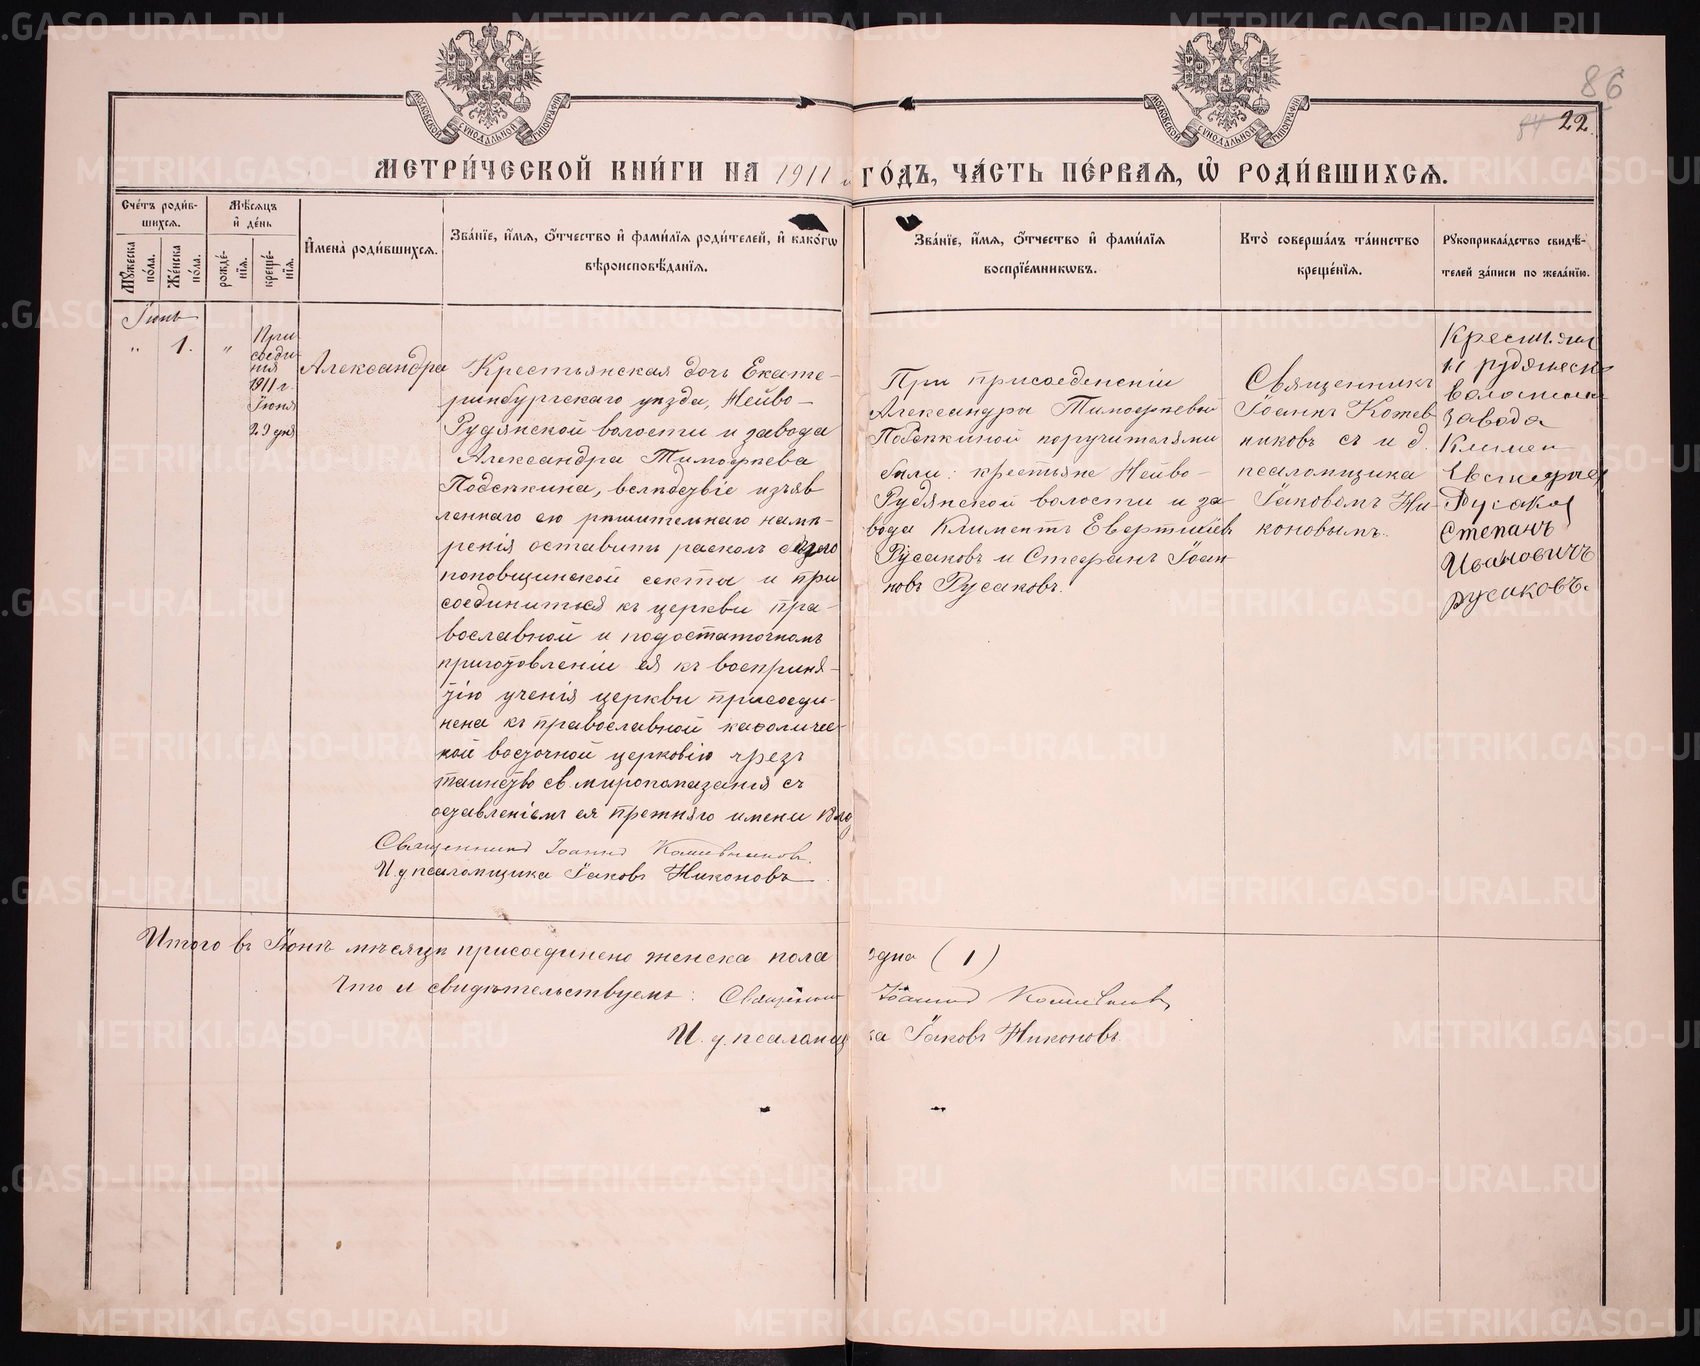 86
84 22.
МОСКОВСКОЙ СѴНОДАЛЬНОЙ ТИПОГРАФІИ
МОСКОВСКОЙ СѴНОДАЛЬНОЙ ТИПОГРАФІИ
МЕТРИ́ЧЕСКОЙ КНИ́ГИ НА 1911 ГО́ДЪ, ЧА́СТЬ ПЕ́РВАѦ, Ѽ РОДИ́ВШИХСѦ.
Сче́тъ роди́в-
шихсѧ.
Мꙋ́жеска по́ла.
Же́нска по́ла.
Мѣ́сѧцъ
и҆ де́нь
рожде́-
нїѧ.
креще́-
нїѧ.
И҆мена̀ роди́вшихсѧ.
Зва́нїе, и҆́мѧ, ѻ҆́тчество и҆ фами́лїѧ роди́телей, и҆ како́гѡ
вѣроисповѣ́данїѧ.
Зва́нїе, и҆́мѧ, ѻ҆́тчество и҆ фами́лїѧ
воспрїе́мникѡвъ.
Кто̀ соверша́лъ та́инство
креще́нїѧ.
Рꙋкоприкла́дство свидѣ́-
телей за́писи по жела́нїю.
Іюнь
" 1. "
При
соеди-
нія
1911 г.
Іюня
29 дня
Александра
Крестьянская дочь Екате-
ринбургскаго уѣзда, Нейво-
Рудянской волости и завода
Александра Тимофѣева
Подсѣкина, вслѣдствіе изъяв
леннаго ею рѣшительнаго намѣ-
ренія оставить расколъ
поповщинской секты и при
соединиться къ церкви пра-
вославной и подостаточномъ
приготовленіи ея къ восприня-
тію ученія церкви присоеди-
нена къ православной каѳоличес-
кой восточной церковію чрезъ
таинство св. миропомазанія съ
оставленіемъ ея прежняго имени
Священникъ Іоаннъ Кожевниковъ.
И. д. псаломщика Іаковъ Никоновъ
При присоеденсніи
Александры Тимофѣевой
Подсѣкиной поручителями
были: крестьяне Нейво-
Рудянской волости и за-
вода Климентъ Евстифіевъ
Русаковъ и Стефанъ Іоан
новъ Русаковъ.
Священникъ
Іоаннъ Кожев
никовъ съ и д.
псаломщика
Іаковомъ Ни-
коновымъ.
Крестьян
н рудянск
волости
завода
Климен
Евстифіев
Русаков
Степанъ
Ивановичъ
русаковъ.
Итого въ Іюнѣ мѣсяцѣ присоединено женска пола одна (1)
Что и свидѣтельствуемъ: Священник Іоаннъ Кожевников
И. д. псаломщика Іаковъ Никоновъ.
METRIKI.GASO-URAL.RU